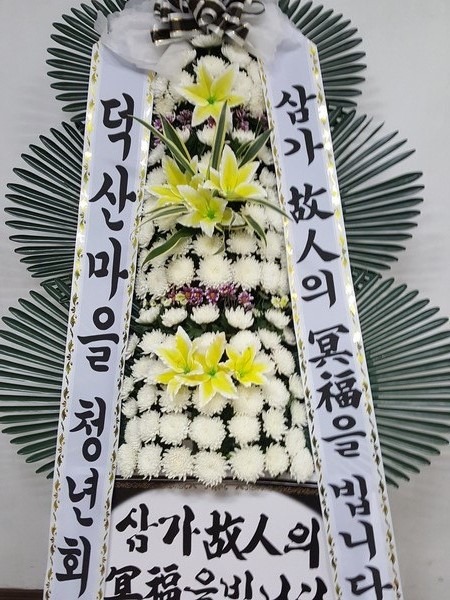 덕산마을 청년회
삼가 故人의 冥福을 빕니다
삼가 故人의
冥福을 빕니다